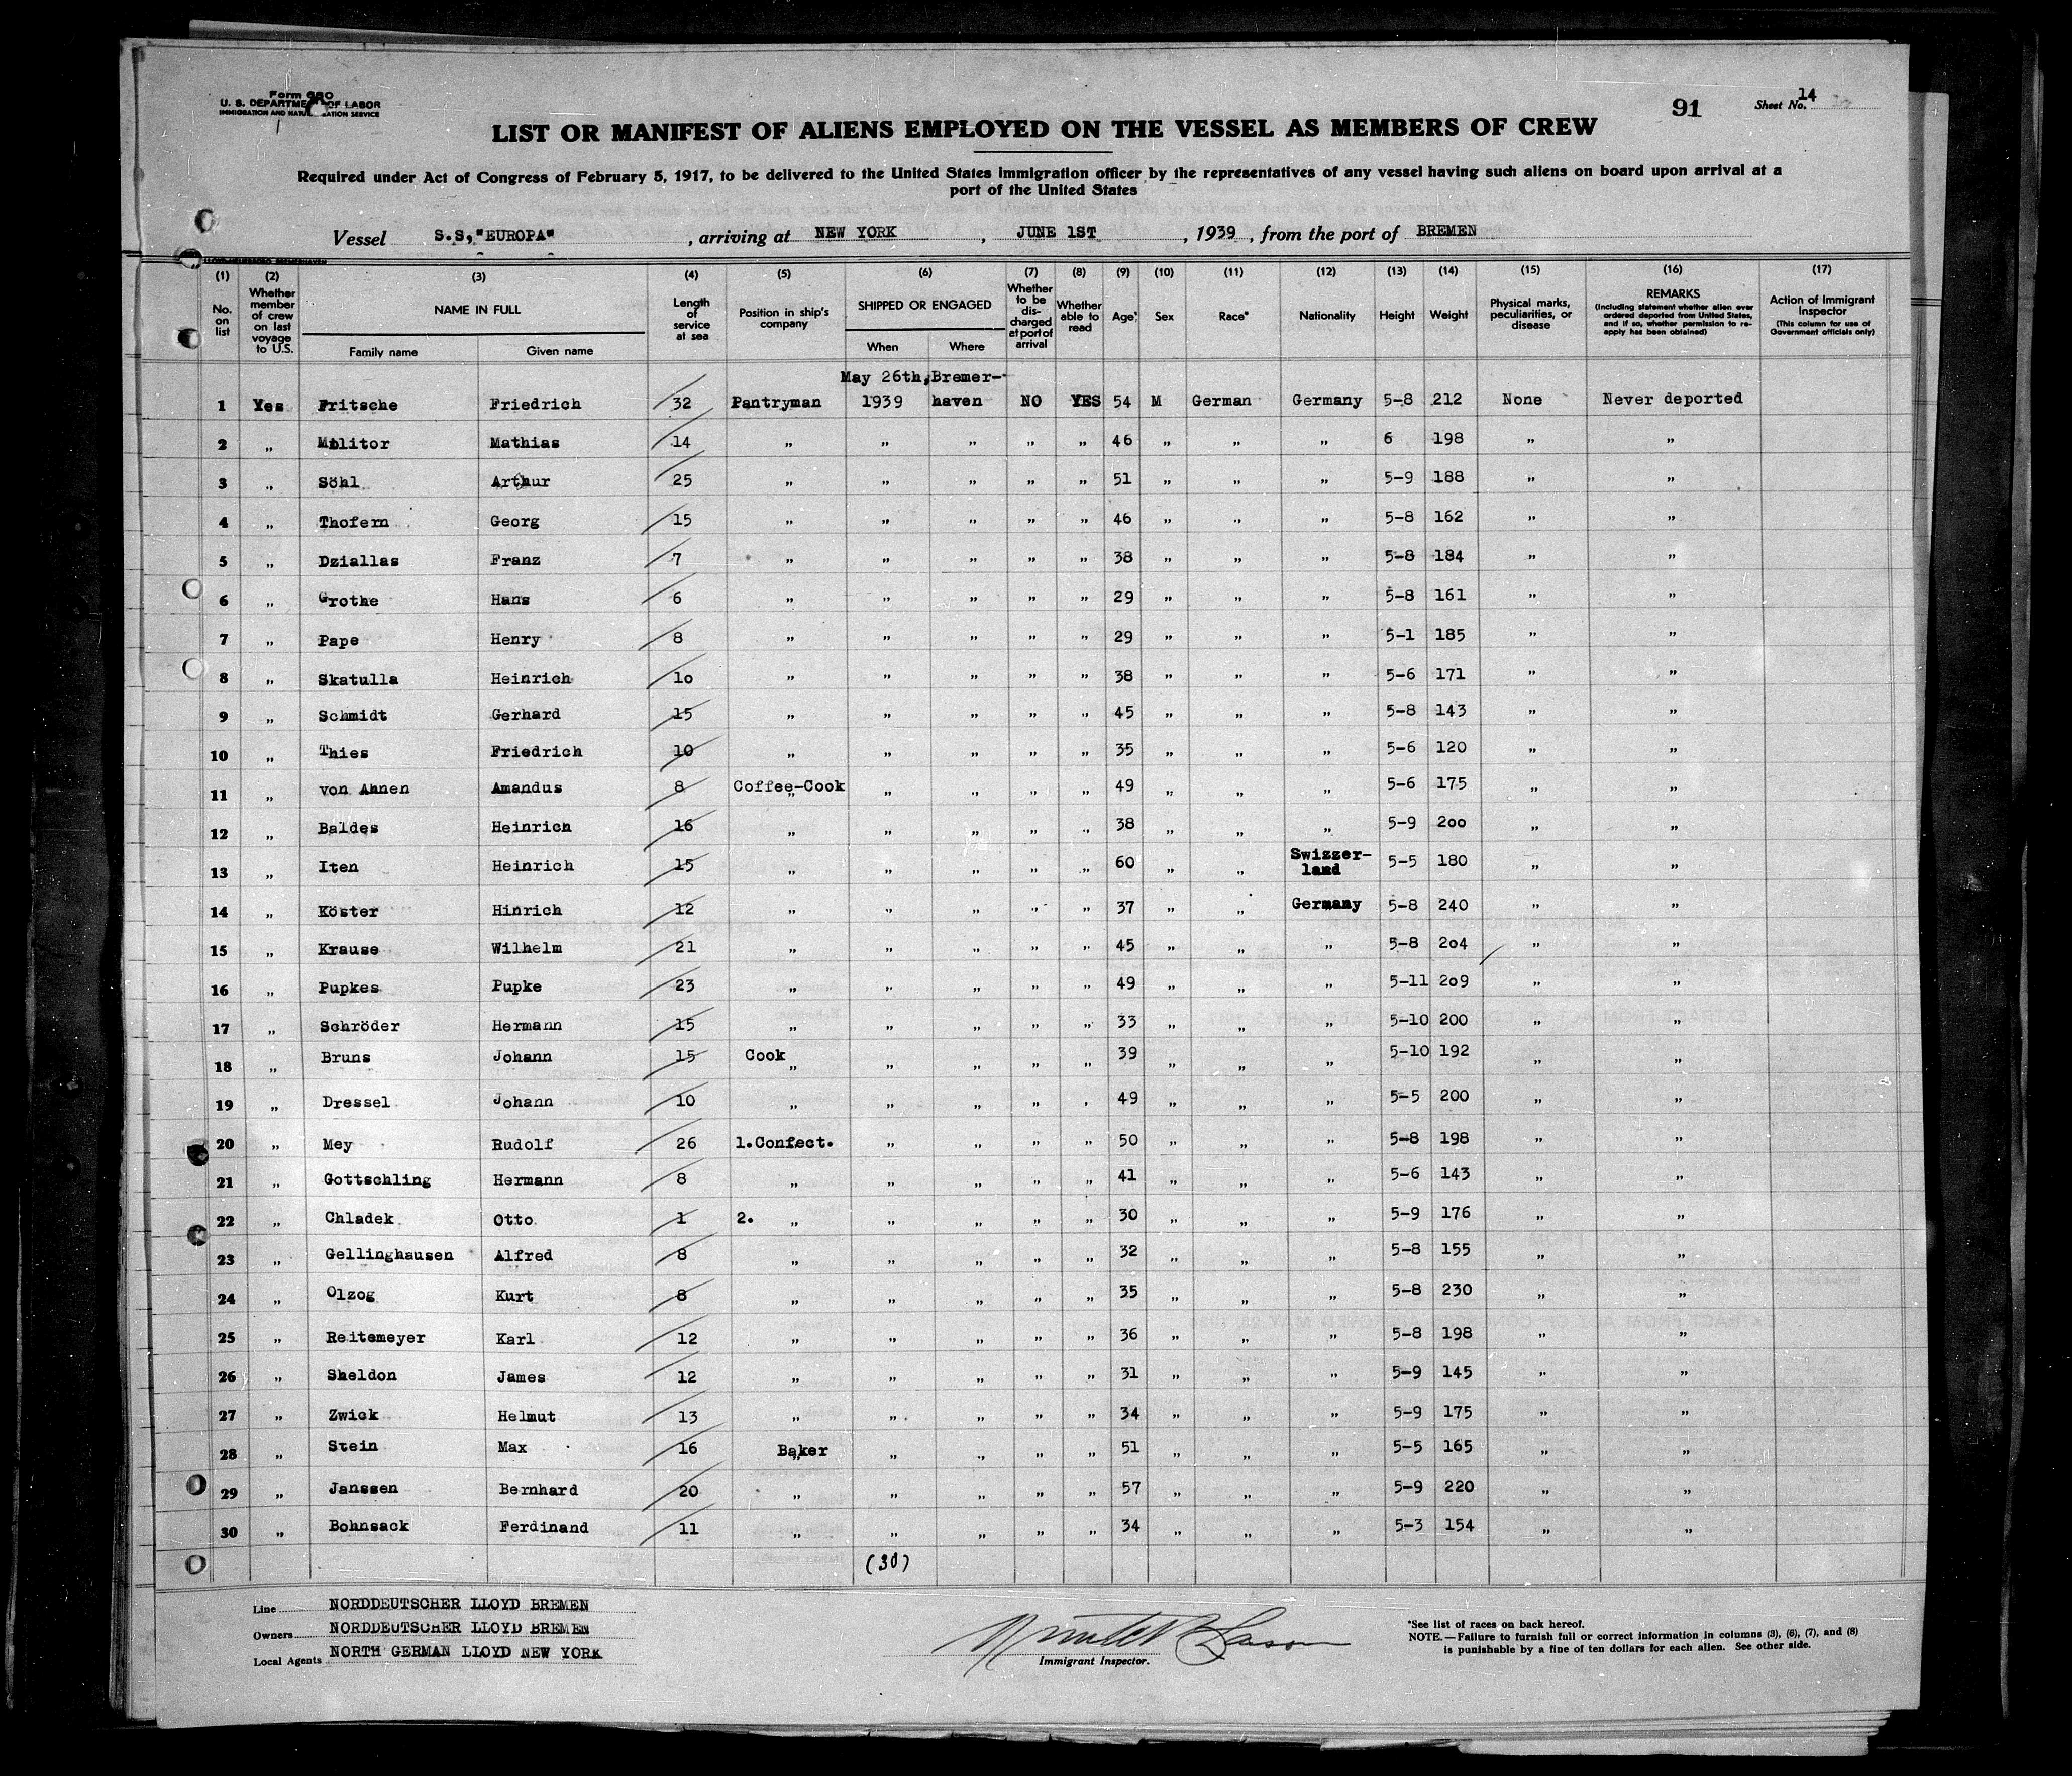 Form 680
U. S. DEPARTMENT OF LABOR
IMMIGRATION AND NATURALIZATION SERVICE
91
Sheet No. 14
LIST OR MANIFEST OF ALIENS EMPLOYED ON THE VESSEL AS MEMBERS OF CREW
Required under Act of Congress of February 5, 1917, to be delivered to the United States immigration officer by the representatives of any vessel having such aliens on board upon arrival at a
port of the United States
Vessel S.S,"EUROPA", arriving at NEW YORK, JUNE 1ST, 1939, from the port of BREMEN
(1) (2) (3) (4) (5) (6) (7) (8) (9) (10) (11) (12) (13) (14) (15) (16) (17)
No. on list
Whether member of crew on last voyage to U.S.
NAME IN FULL
Family name Given name
Length of service at sea
Position in ship's company
SHIPPED OR ENGAGED
When Where
Whether to be discharged at port of arrival
Whether able to read
Age
Sex
Race*
Nationality
Height
Weight
Physical marks, peculiarities, or disease
REMARKS
(Including statement whether alien ever ordered deported from United States, and if so, whether permission to reapply has been obtained)
Action of Immigrant Inspector
(This column for use of Government officials only)
May 26th, Bremer-
1 Yes Fritsche Friedrich 32 Pantryman 1939 haven NO YES 54 M German Germany 5-8 212 None Never deported
2 " Molitor Mathias 14 " " " " " 46 " " " 6 198 " "
3 " Söhl Arthur 25 " " " " " 51 " " " 5-9 188 " "
4 " Thofern Georg 15 " " " " " 46 " " " 5-8 162 " "
5 " Dziallas Franz 7 " " " " " 38 " " " 5-8 184 " "
6 " Grothe Hans 6 " " " " " 29 " " " 5-8 161 " "
7 " Pape Henry 8 " " " " " 29 " " " 5-1 185 " "
8 " Skatulla Heinrich 1o " " " " " 38 " " " 5-6 171 " "
9 " Schmidt Gerhard 15 " " " " " 45 " " " 5-8 143 " "
10 " Thies Friedrich 10 " " " " " 35 " " " 5-6 120 " "
11 " von Ahnen Amandus 8 Coffee-Cook " " " " 49 " " " 5-6 175 " "
12 " Baldes Heinrich 16 " " " " " 38 " " " 5-9 2oo " "
13 " Iten Heinrich 15 " " " " " 60 " " Swizzer-land 5-5 180 " "
14 " Köster Hinrich 12 " " " " " 37 " " Germany 5-8 240 " "
15 " Krause Wilhelm 21 " " " " " 45 " " " 5-8 2o4 " "
16 " Pupkes Pupke 23 " " " " " 49 " " " 5-11 2o9 " "
17 " Schröder Hermann 15 " " " " " 33 " " " 5-10 200 " "
18 " Bruns Johann 15 Cook " " " " 39 " " " 5-10 192 " "
19 " Dressel Johann 10 " " " " " 49 " " " 5-5 200 " "
20 " Mey Rudolf 26 1.Confect. " " " " 50 " " " 5-8 198 " "
21 " Gottschling Hermann 8 " " " " " 41 " " " 5-6 143 " "
22 " Chladek Otto 1 2. " " " " " 30 " " " 5-9 176 " "
23 " Gellinghausen Alfred 8 " " " " " 32 " " " 5-8 155 " "
24 " Olzog Kurt 8 " " " " " 35 " " " 5-8 230 " "
25 " Reitemeyer Karl 12 " " " " " 36 " " " 5-8 198 " "
26 " Sheldon James 12 " " " " " 31 " " " 5-9 145 " "
27 " Zwick Helmut 13 " " " " " 34 " " " 5-9 175 " "
28 " Stein Max 16 Baker " " " " 51 " " " 5-5 165 " "
29 " Janssen Bernhard 20 " " " " " 57 " " " 5-9 220 " "
30 " Bohnsack Ferdinand 11 " " " " " 34 " " " 5-3 154 " "
(30)
Line NORDDEUTSCHER LLOYD BREMEN
Owners NORDDEUTSCHER LLOYD BREMEN
Local Agents NORTH GERMAN LLOYD NEW YORK
Immigrant Inspector.
*See list of races on back hereof.
NOTE.—Failure to furnish full or correct information in columns (3), (6), (7), and (8)
is punishable by a fine of ten dollars for each alien. See other side.